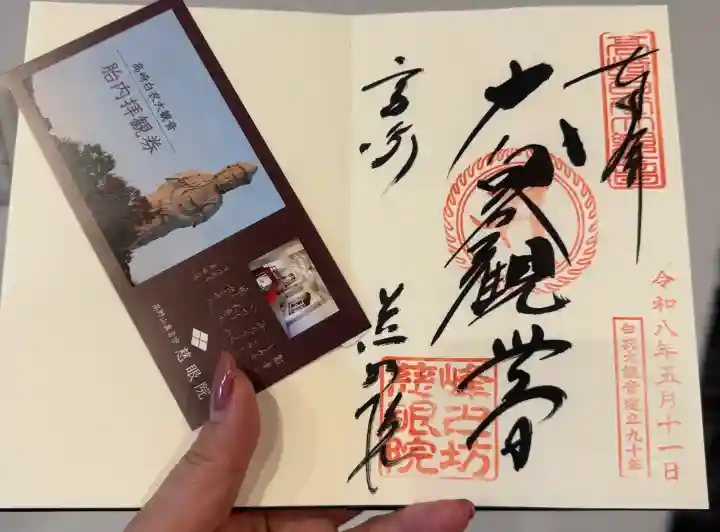 高崎白衣大観音
胎内拝観券
高野山真言宗
慈眼院
奉拝
大白衣觀音
高崎
慈眼院
峰之坊
慈眼院
令和八年五月十一日
白衣大観音建立九十年